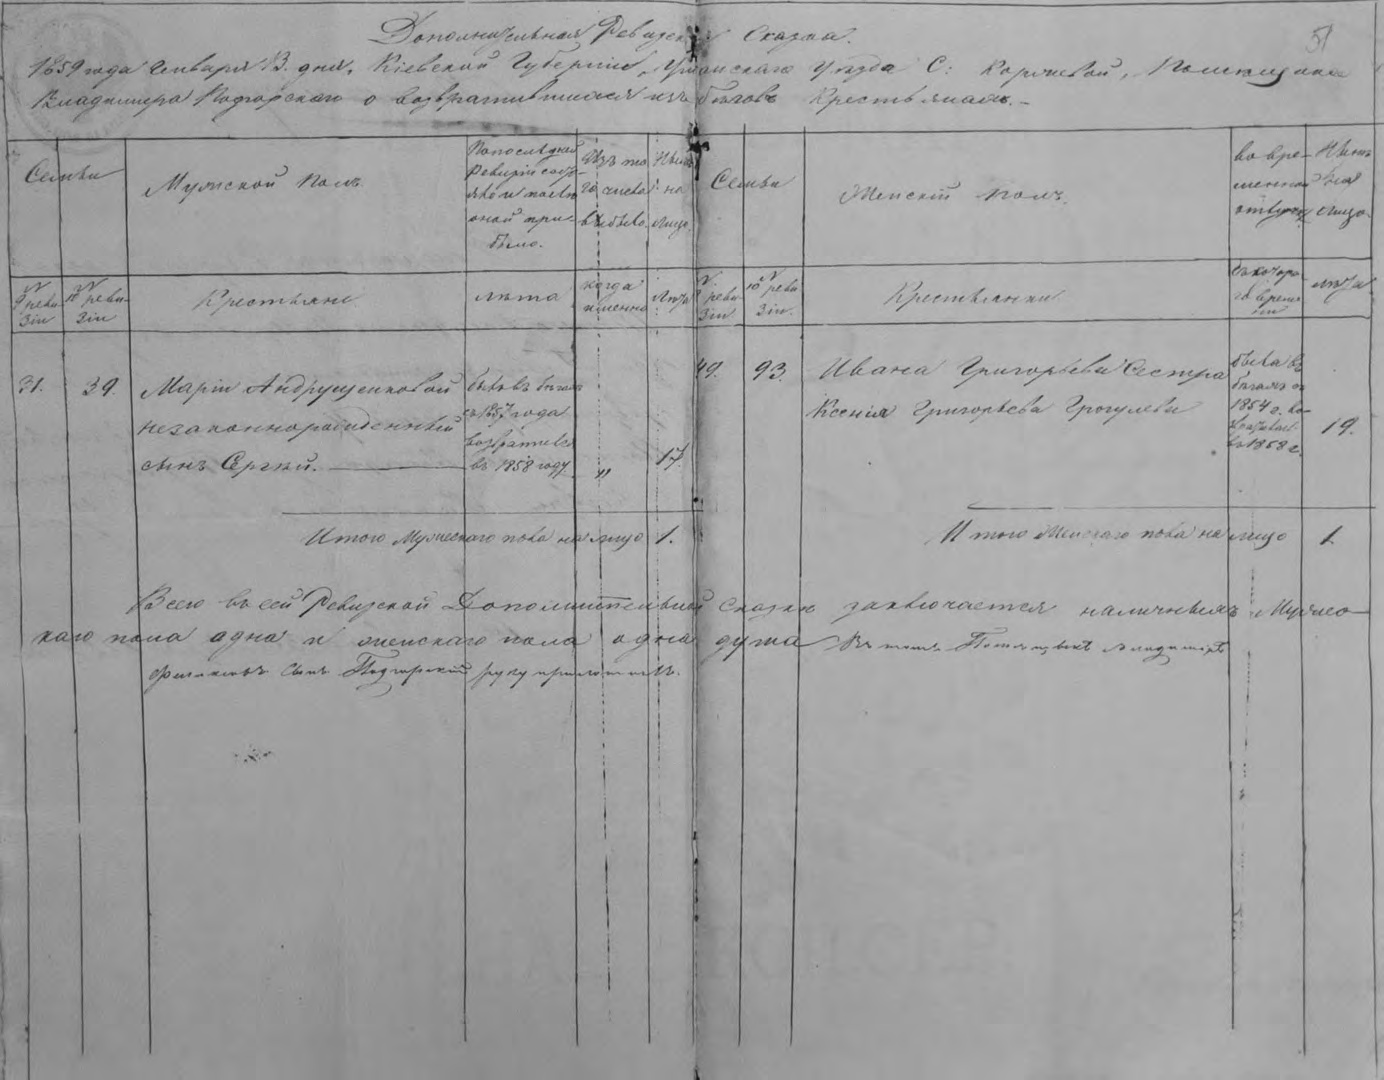 Дополнительная Ревизская Сказка.
51
1859 года Генваря 13. дня, Кіевской Губерніи, Уманскаго Уѣзда С: Коржевой, Помѣщика
Владимира Подгорскаго о возвратившихся изъ бѣговъ Крестьянахъ.
Семьи
Мужской Полъ.
По последней Ревизіи
было.
Изъ то
го числа
выбыло.
Нынѣ
на
лицо.
Семьи
Женскій Полъ.
во вре-
менной
отлучкѣ
Нынѣ
на
лицо.
N 9 реви-
зіи
N 10 реви-
зіи
Крестьяне
лѣта
когда
именно
лѣта
N 9 реви-
зіи
N 10 реви-
зіи.
Крестьянки
съ котора-
го време-
ни
лѣта
31.
39.
Маріи Андрущенковой
незаконнорожденный
сынъ Сергѣй.
бывъ въ бѣгахъ
съ 1857 года
возвратився
въ 1858 году
"
17.
49.
93.
Ивана Григорьева Сестра
Ксенія Григорьева
была въ
бѣгахъ съ
1854 г. во-
въ 1858 г.
19.
Итого Мужескаго пола на лицо 1.
Итого Женскаго пола на лицо 1.
Всего въ сей Ревизской Дополнительной Сказкѣ заключается наличныхъ Мужес-
каго пола одна и женскаго пола одна душа Въ томъ Помѣщикъ Владимиръ
сынъ Подгорскій руку приложилъ.